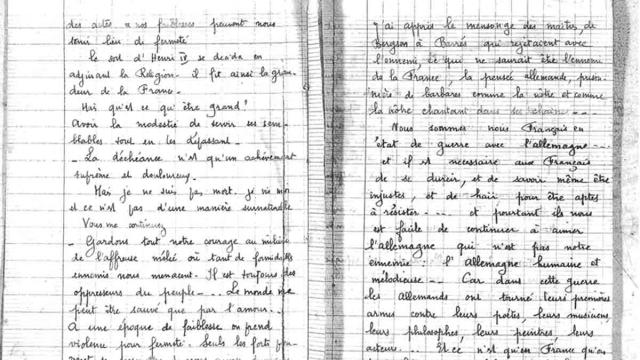 des actes à nos faiblesses peuvent nous
tenir lieu de fermeté
le sort d'Henri IV, se décida en
adjurant la Religion. il fit ainsi la gran-
deur de la France.
Mais qu'est ce qu'être grand?
Avoir la modestie de servir ses sem-
blables tout en les dépassant.
_ La déchéance n'est qu'un achèvement
suprême et douloureux.
Mais je ne suis pas mort. je ne
et ce n'est pas d'une manière surnaturelle
Vous me continuez
_ Gardons tout notre courage au milieu
de l'affreuse mêlée où tant de formidables
ennemis nous menacent. Il est toujours des
oppresseurs du peuple _ _ . Le monde ne
peut être sauvé que par l'amour..
A une époque de faiblesse on prend
violence pour fermeté. Seuls les forts
J'ai appris le mensonge des maîtres, de
Bergson à Barrès qui rejetaient avec
l'ennemi, ce qui ne saurait être l'ennemi
de la France, la pensée allemande, prison-
nière de barbares comme la nôtre et comme
la nôtre chantant dans ses chaînes _ _ _
Nous sommes nous Français en
état de guerre avec l'allemagne _ _ _
et il est nécessaire aux Français
de se durcir, et de savoir même être
injustes, et de haïr pour être aptes
à résister _ _ _ et pourtant ils nous
est facile de continuer à aimer
l'allemagne qui n'est pas notre
ennemie : l'Allemagne humaine et
mélodieuse _ _ Car dans cette guerre
les Allemands ont tourné leurs premières
armes contre leurs poètes, leurs musiciens,
leurs philosophes, leurs peintres leurs
acteurs _ _ . Et ce n'est qu'en France qu'on